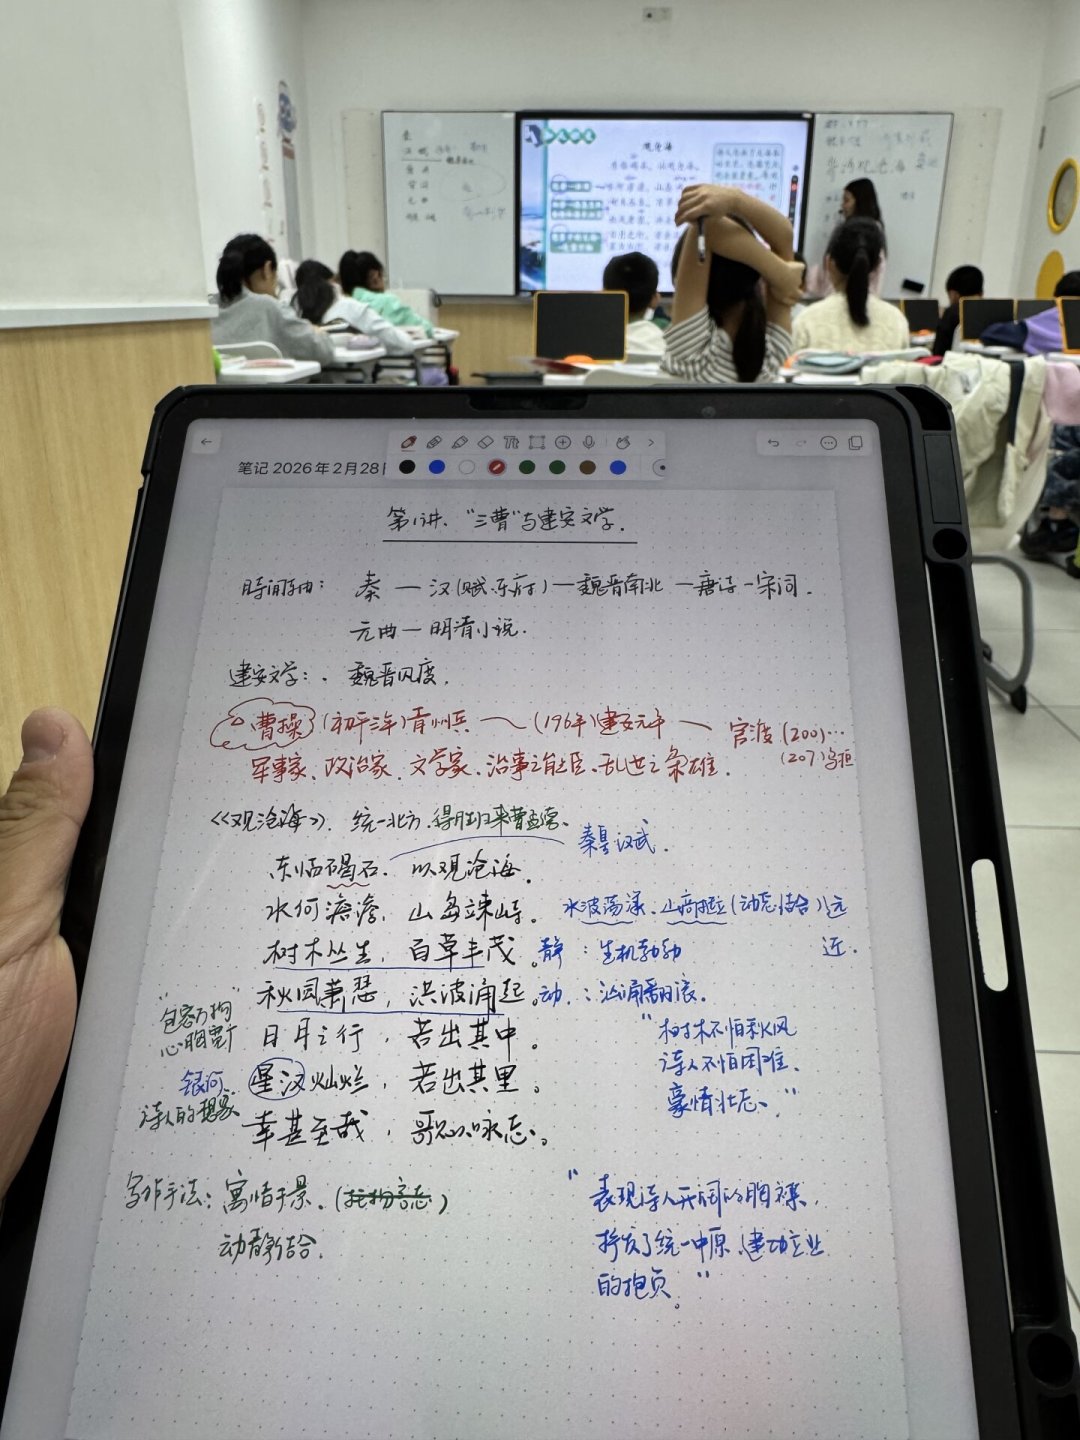 观沧海
笔记 2026年2月28日
第1讲、“三曹”与建安文学.
时间轴: 秦 — 汉(赋.乐府) — 魏晋南北 — 唐诗 — 宋词.
元曲 — 明清小说.
建安文学: . 魏晋风度.
曹操 (初平三年)青州兵 — (196年)建安元年 — 官渡(200)…
(207)乌桓
军事家、政治家、文学家、治事之能臣、乱世之枭雄.
《观沧海》. 统一北方.得胜班来曹孟德、
秦皇汉武.
东临碣石. 以观沧海.
水何澹澹, 山岛竦峙。 水波荡漾、山高挺立(动态结合) 远
树木丛生, 百草丰茂。静 : 生机勃勃 近.
秋风萧瑟, 洪波涌起。动 : 汹涌翻滚.
“包容万物
心胸宽广
日月之行, 若出其中。
“树木不怕秋风
诗人不怕困难.
豪情壮志、”
银河.
诗人的想象
星汉灿烂, 若出其里。
幸甚至哉, 歌以咏志。
写作手法: 寓情于景、(托物言志)
动静结合.
“表现诗人开阔的胸襟,
抒发了统一中原、建功立业
的抱负。”